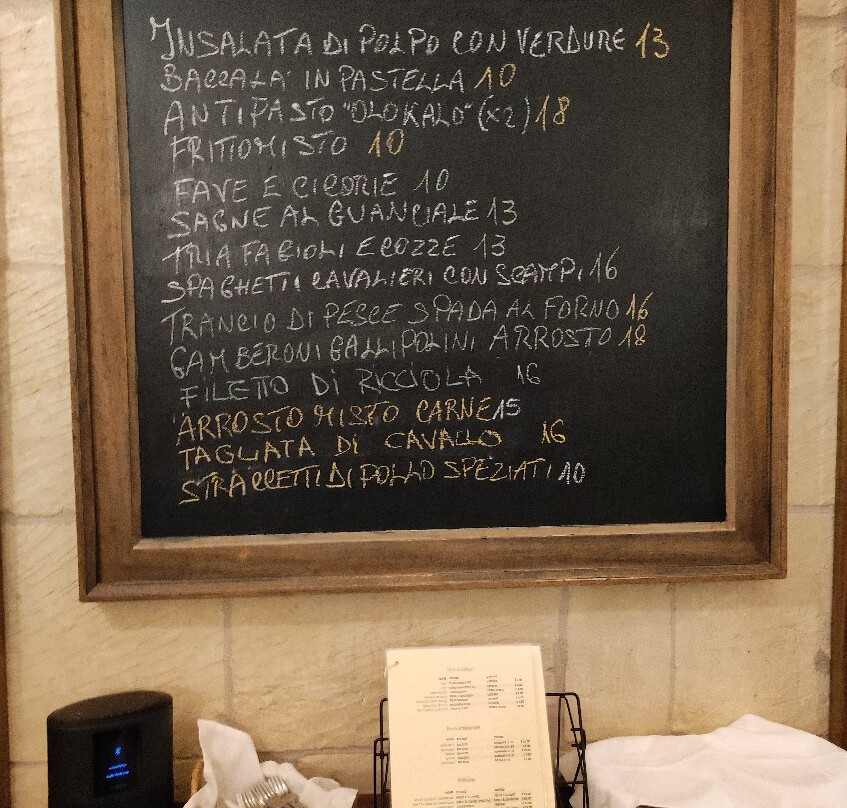 INSALATA DI POLPO CON VERDURE 13
BACCALA' IN PASTELLA 10
ANTIPASTO "OLOKALO" (x2) 18
FRITTO MISTO 10
FAVE E CICORIE 10
SAGNE AL GUANCIALE 13
TRIA FAGIOLI E COZZE 13
SPAGHETTI CAVALIERI CON SCAMPI 16
TRANCIO DI PESCE SPADA AL FORNO 16
GAMBERONI GALLIPOLINI ARROSTO 18
FILETTO DI RICCIOLA 16
ARROSTO MISTO CARNE 15
TAGLIATA DI CAVALLO 16
STRACCETTI DI POLLO SPEZIATI 10